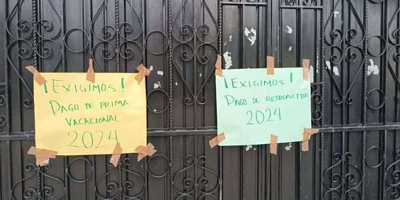 ¡EXIGIMOS!
PAGO DE PRIMA
VACACIONAL
2024
¡EXIGIMOS!
PAGO DE RETROACTIVO
2024